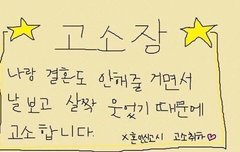 고소장
나랑 결혼도 안해줄 거면서
날 보고 살짝 웃었기 때문에
고소합니다.
x혼인신고시 고소취하♡